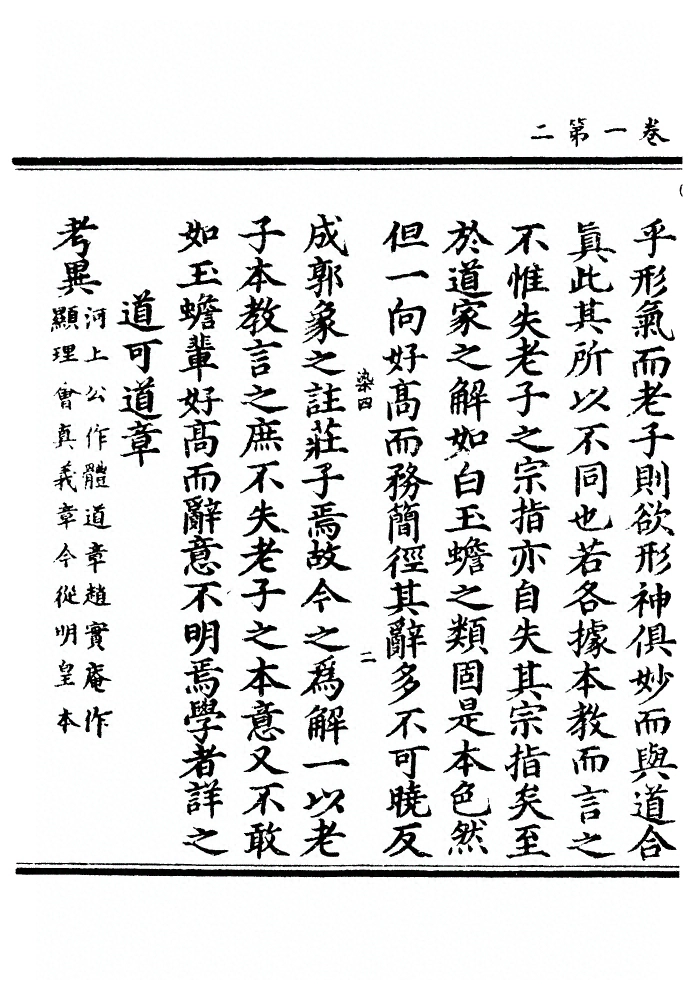 卷一第二
乎形氣而老子則欲形神俱妙而與道合
眞此其所以不同也若各據本教而言之
不惟失老子之宗指亦自失其宗指矣至
於道家之解如白玉蟾之類固是本色然
但一向好高而務簡徑其辭多不可曉反
染四　二
成郭象之註莊子焉故今之爲解一以老
子本教言之庶不失老子之本意又不敢
如玉蟾輩好高而辭意不明焉學者詳之
道可道章
考異
河上公作體道章趙實庵作
顯理會真義章今從明皇本